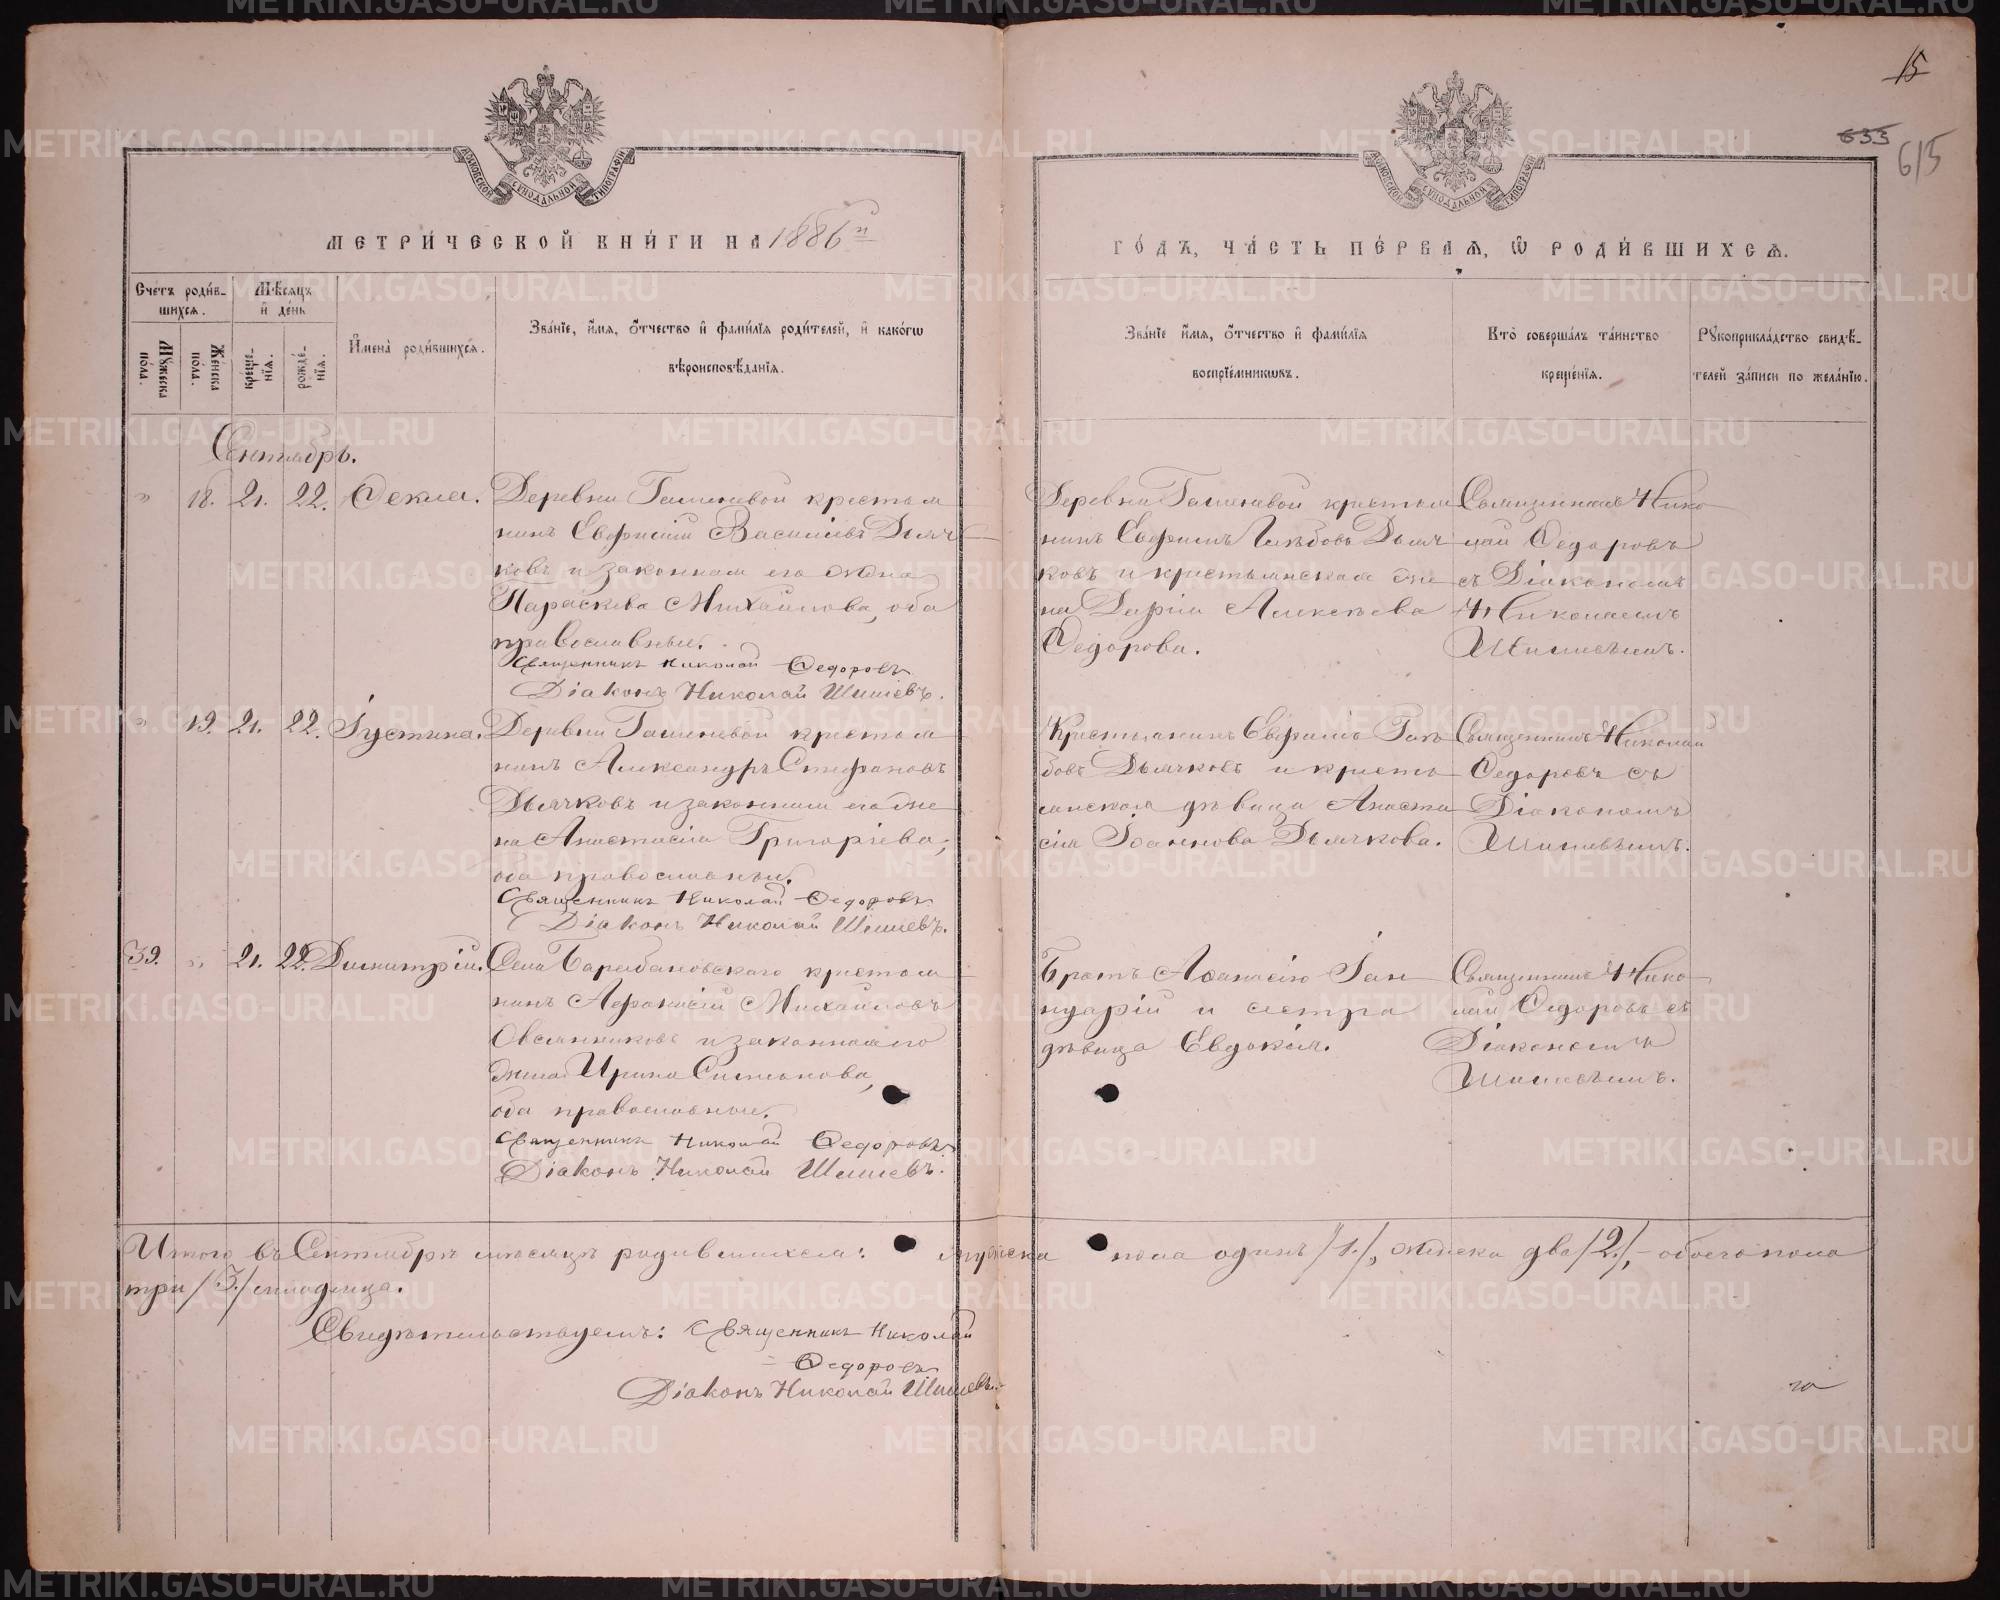 15
633
615
МОСКОВСКОЙ СѴНОДАЛЬНОЙ ТИПОГРАФІИ
МОСКОВСКОЙ СѴНОДАЛЬНОЙ ТИПОГРАФІИ
МЕТРИ́ЧЕСКОЙ КНИ́ГИ НА 1886й
ГО́ДЪ, ЧА́СТЬ ПЕ́РВАѦ, Ѡ РОДИ́ВШИХСѦ.
Сче́тъ роди́вшихсѧ.
Мꙋ́жеска по́ла.
Же́нска по́ла.
Мѣ́сѧцъ и҆ де́нь
креще́нїѧ.
рожде́нїѧ.
И҆мена̀ роди́вшихсѧ.
Зва́нїе, и҆́мѧ, ѻ҆́тчество и҆ фами́лїѧ роди́телей, и҆ како́гѡ
вѣроисповѣ́данїѧ.
Зва́нїе и҆́мѧ, ѻ҆́тчество и҆ фами́лїѧ
воспрїе́мникѡвъ.
Кто̀ соверша́лъ та́инство
креще́нїѧ.
Рꙋкоприкла́дство свидѣ́телей за́писи по жела́нїю.
Сентябрь.
" 18. 21. 22. Ѳекла.
Деревни Гашеневой крестья
нинъ Евфимій Васильевъ Дьяч
ковъ и законная его жена
Параскева Михайлова, оба
православные.
Священникъ Николай Ѳедоровъ
Діаконъ Николай Шишевъ.
Деревни Гашеневой крестья
нинъ Евфимъ Глѣбовъ Дьяч
ковъ и крестьянская же
на Дарія Алексѣева
Ѳедорова.
Священникъ Нико
лай Ѳедоровъ
съ Діакономъ
Николаемъ
Шишевымъ.
" 19. 21. 22. Іустина.
Деревни Гашеневой крестья
нинъ Александръ Стефановъ
Дьячковъ и законная его же
на Анастасія Григоріева,
оба православные.
Священникъ Николай Ѳедоровъ
Діаконъ Николай Шишевъ.
Крестьянинъ Евфимій Глѣ
бовъ Дьячковъ и кресть
янская дѣвица Анаста
сія Іоаннова Дьячкова.
Священникъ Николай
Ѳедоровъ съ
Діакономъ
Шишевымъ.
39. " 21. 22. Димитрій.
Села Барабановскаго крестья
нинъ Аѳанасій Михайловъ
Овсянниковъ и законная его
жена Ирина Симеонова,
оба православные.
Священникъ Николай Ѳедоровъ
Діаконъ Николай Шишевъ.
Братъ Аѳанасію Іан
нуарій и сестра
дѣвица Евдокія.
Священникъ Нико
лай Ѳедоровъ съ
Діакономъ
Шишевымъ.
Итого въ Сентябрѣ мѣсяцѣ родившихся: мужеска пола одинъ /1./, женска два /2./, обоего пола
три /3./ младенца.
Свидѣтельствуемъ: Священникъ Николай
Ѳедоровъ
Діаконъ Николай Шишевъ.
METRIKI.GASO-URAL.RU